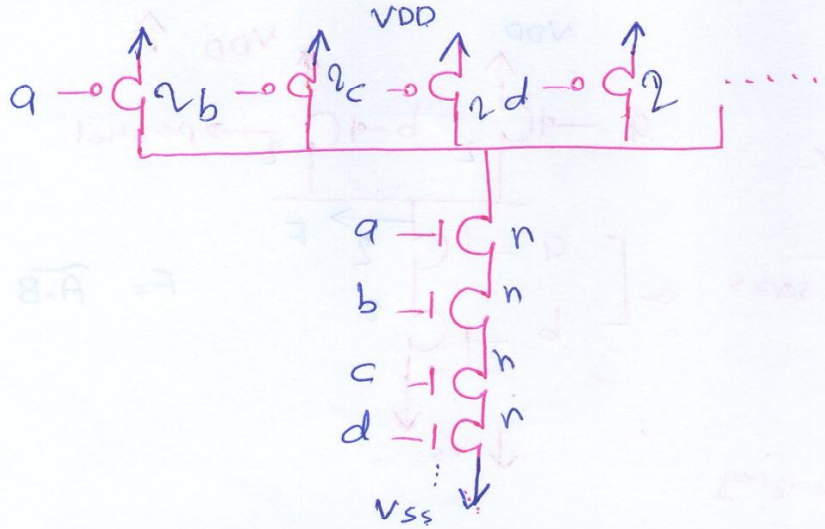 VDD
a 2 b 2 c 2 d 2 ......
a n
b n
c n
d n
Vss